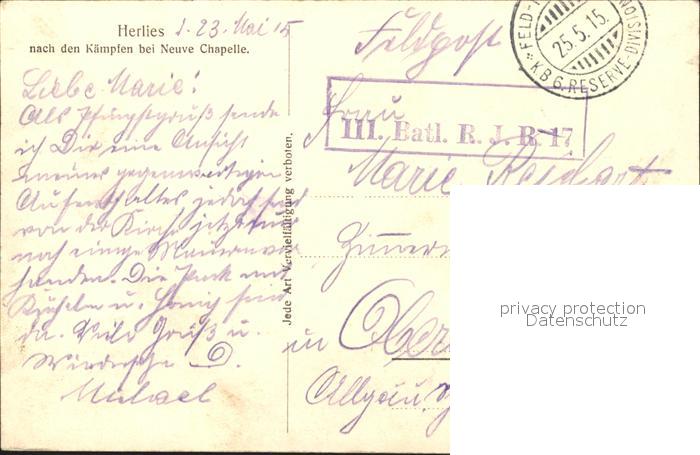 Herlies d. 23. Mai 15
nach den Kämpfen bei Neuve Chapelle.
Liebe Marie!
Als Pfingstgruß sende
ich Dir eine Ansicht
meines gegenwärtigen
Aufenthaltes jedoch sind
von der Kirche jetzt nur
noch einige Mauern vor-
handen. Die Pack mit
u. Honig sind
da. Viele Grüße u.
Michael
Jede Art Vervielfältigung verboten.
Feldpost
FELD-
25.5.15.
* K.B.6. RESERVE-DIVISION
III. Batl. R. J. R 17
Frau
Marie Reichart
Zimmer
in Ober
Allgäu
privacy protection
Datenschutz